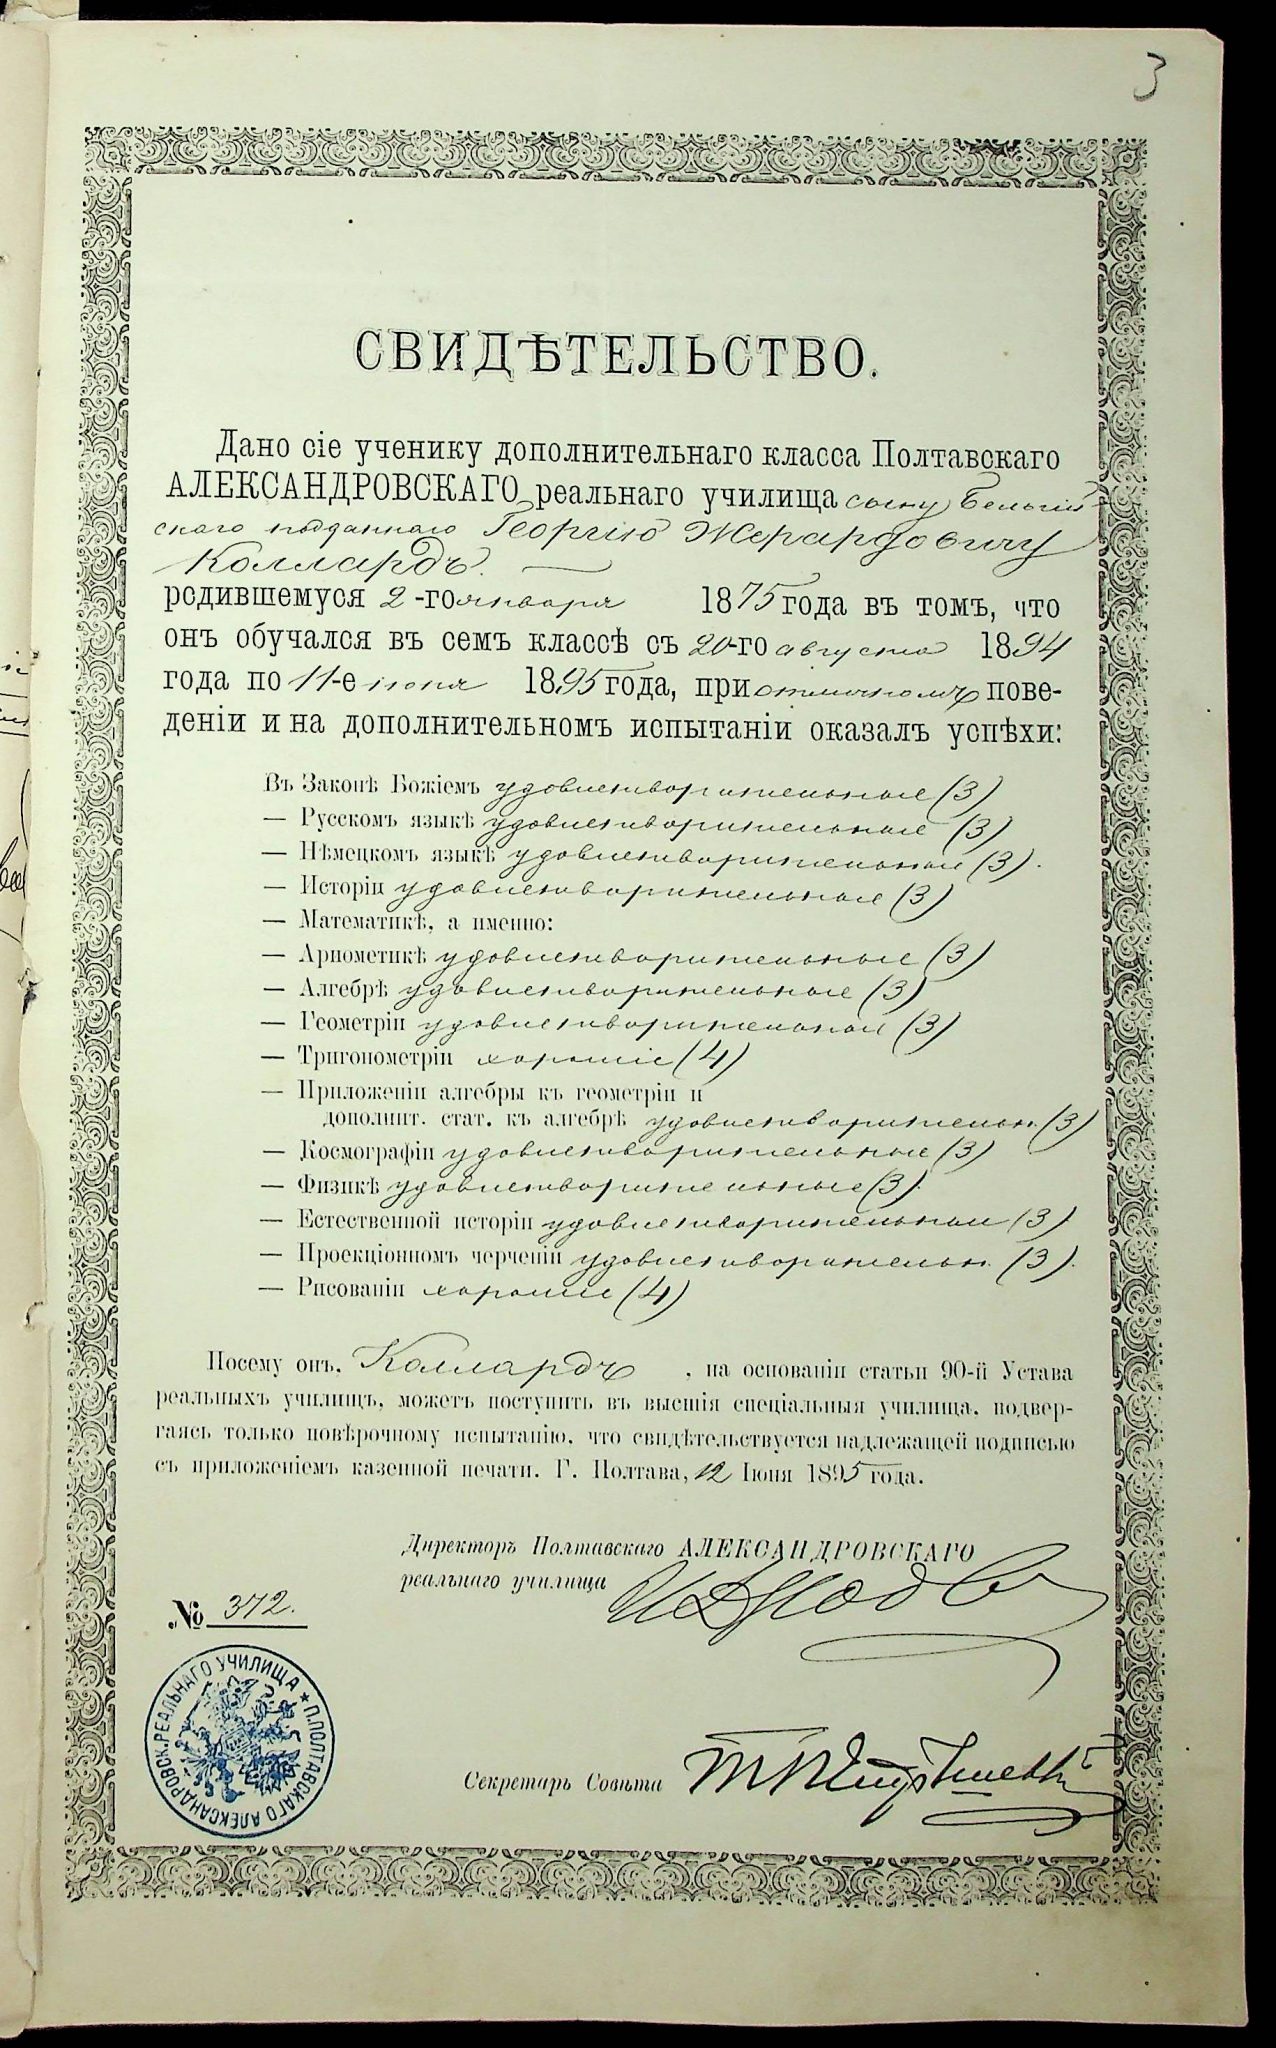 3
СВИДѢТЕЛЬСТВО.
Дано сіе ученику дополнительнаго класса Полтавскаго
АЛЕКСАНДРОВСКАГО реальнаго училища сыну Бельгій-
скаго подданнаго Георгію Жерардовичу
Коллардъ.
родившемуся 2-го января 1875 года въ томъ, что
онъ обучался въ семъ классѣ съ 20-го августа 1894
года по 11-е іюня 1895 года, при отличномъ пове-
деніи и на дополнительномъ испытаніи оказалъ успѣхи:
Въ Законѣ Божіемъ удовлетворительные (3)
— Русскомъ языкѣ удовлетворительные (3)
— Нѣмецкомъ языкѣ удовлетворительные (3).
— Исторіи удовлетворительные (3)
— Математикѣ, а именно:
— Ариѳметикѣ удовлетворительные (3)
— Алгебрѣ удовлетворительные (3)
— Геометріи удовлетворительные (3)
— Тригонометріи хорошіе (4)
— Приложеніи алгебры къ геометріи и
дополнит. стат. къ алгебрѣ удовлетворительн. (3)
— Космографіи удовлетворительные (3)
— Физикѣ удовлетворительные (3).
— Естественной исторіи удовлетворительные (3)
— Проекціонномъ черченіи удовлетворительн. (3).
— Рисованіи хорошіе (4)
Посему онъ, Коллардъ, на основаніи статьи 90-й Устава
реальныхъ училищъ, можетъ поступить въ высшія спеціальныя училища, подвер-
гаясь только повѣрочному испытанію, что свидѣтельствуется надлежащей подписью
съ приложеніемъ казенной печати. Г. Полтава, 12 Іюня 1895 года.
Директоръ Полтавскаго АЛЕКСАНДРОВСКАГО
реальнаго училища
№ 372.
П.ПОЛТАВСКАГО АЛЕКСАНДРОВСК.РЕАЛЬНАГО УЧИЛИЩА
Секретарь Совѣта